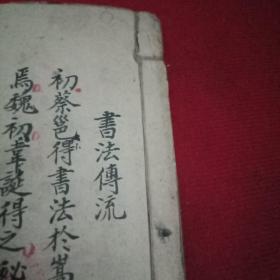 書法傳流
初蔡邕得書法於嵩
焉魏初韋誕得之秘